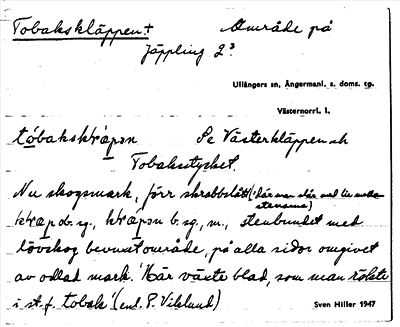 Tobakskläppen + Område på
Jäppling 2³
Ullångers sn, Ångermanl. s. doms. tg.
Västernorrl. l.
tóbakskràpən Se Västerkläppen och
Tobaksstycket.
Nu skogsmark, förr skrabbslått (där man slår ned lie mellan
stenarna)
kràp ob. sg., kràpən b. sg., m., stenbundet med
lövskog bevuxet område, på alla sidor omgivet
av odlad mark. Här växte blad, som man rökte
i st. f. tobak (enl. P. Viklund)
Sven Hiller 1947